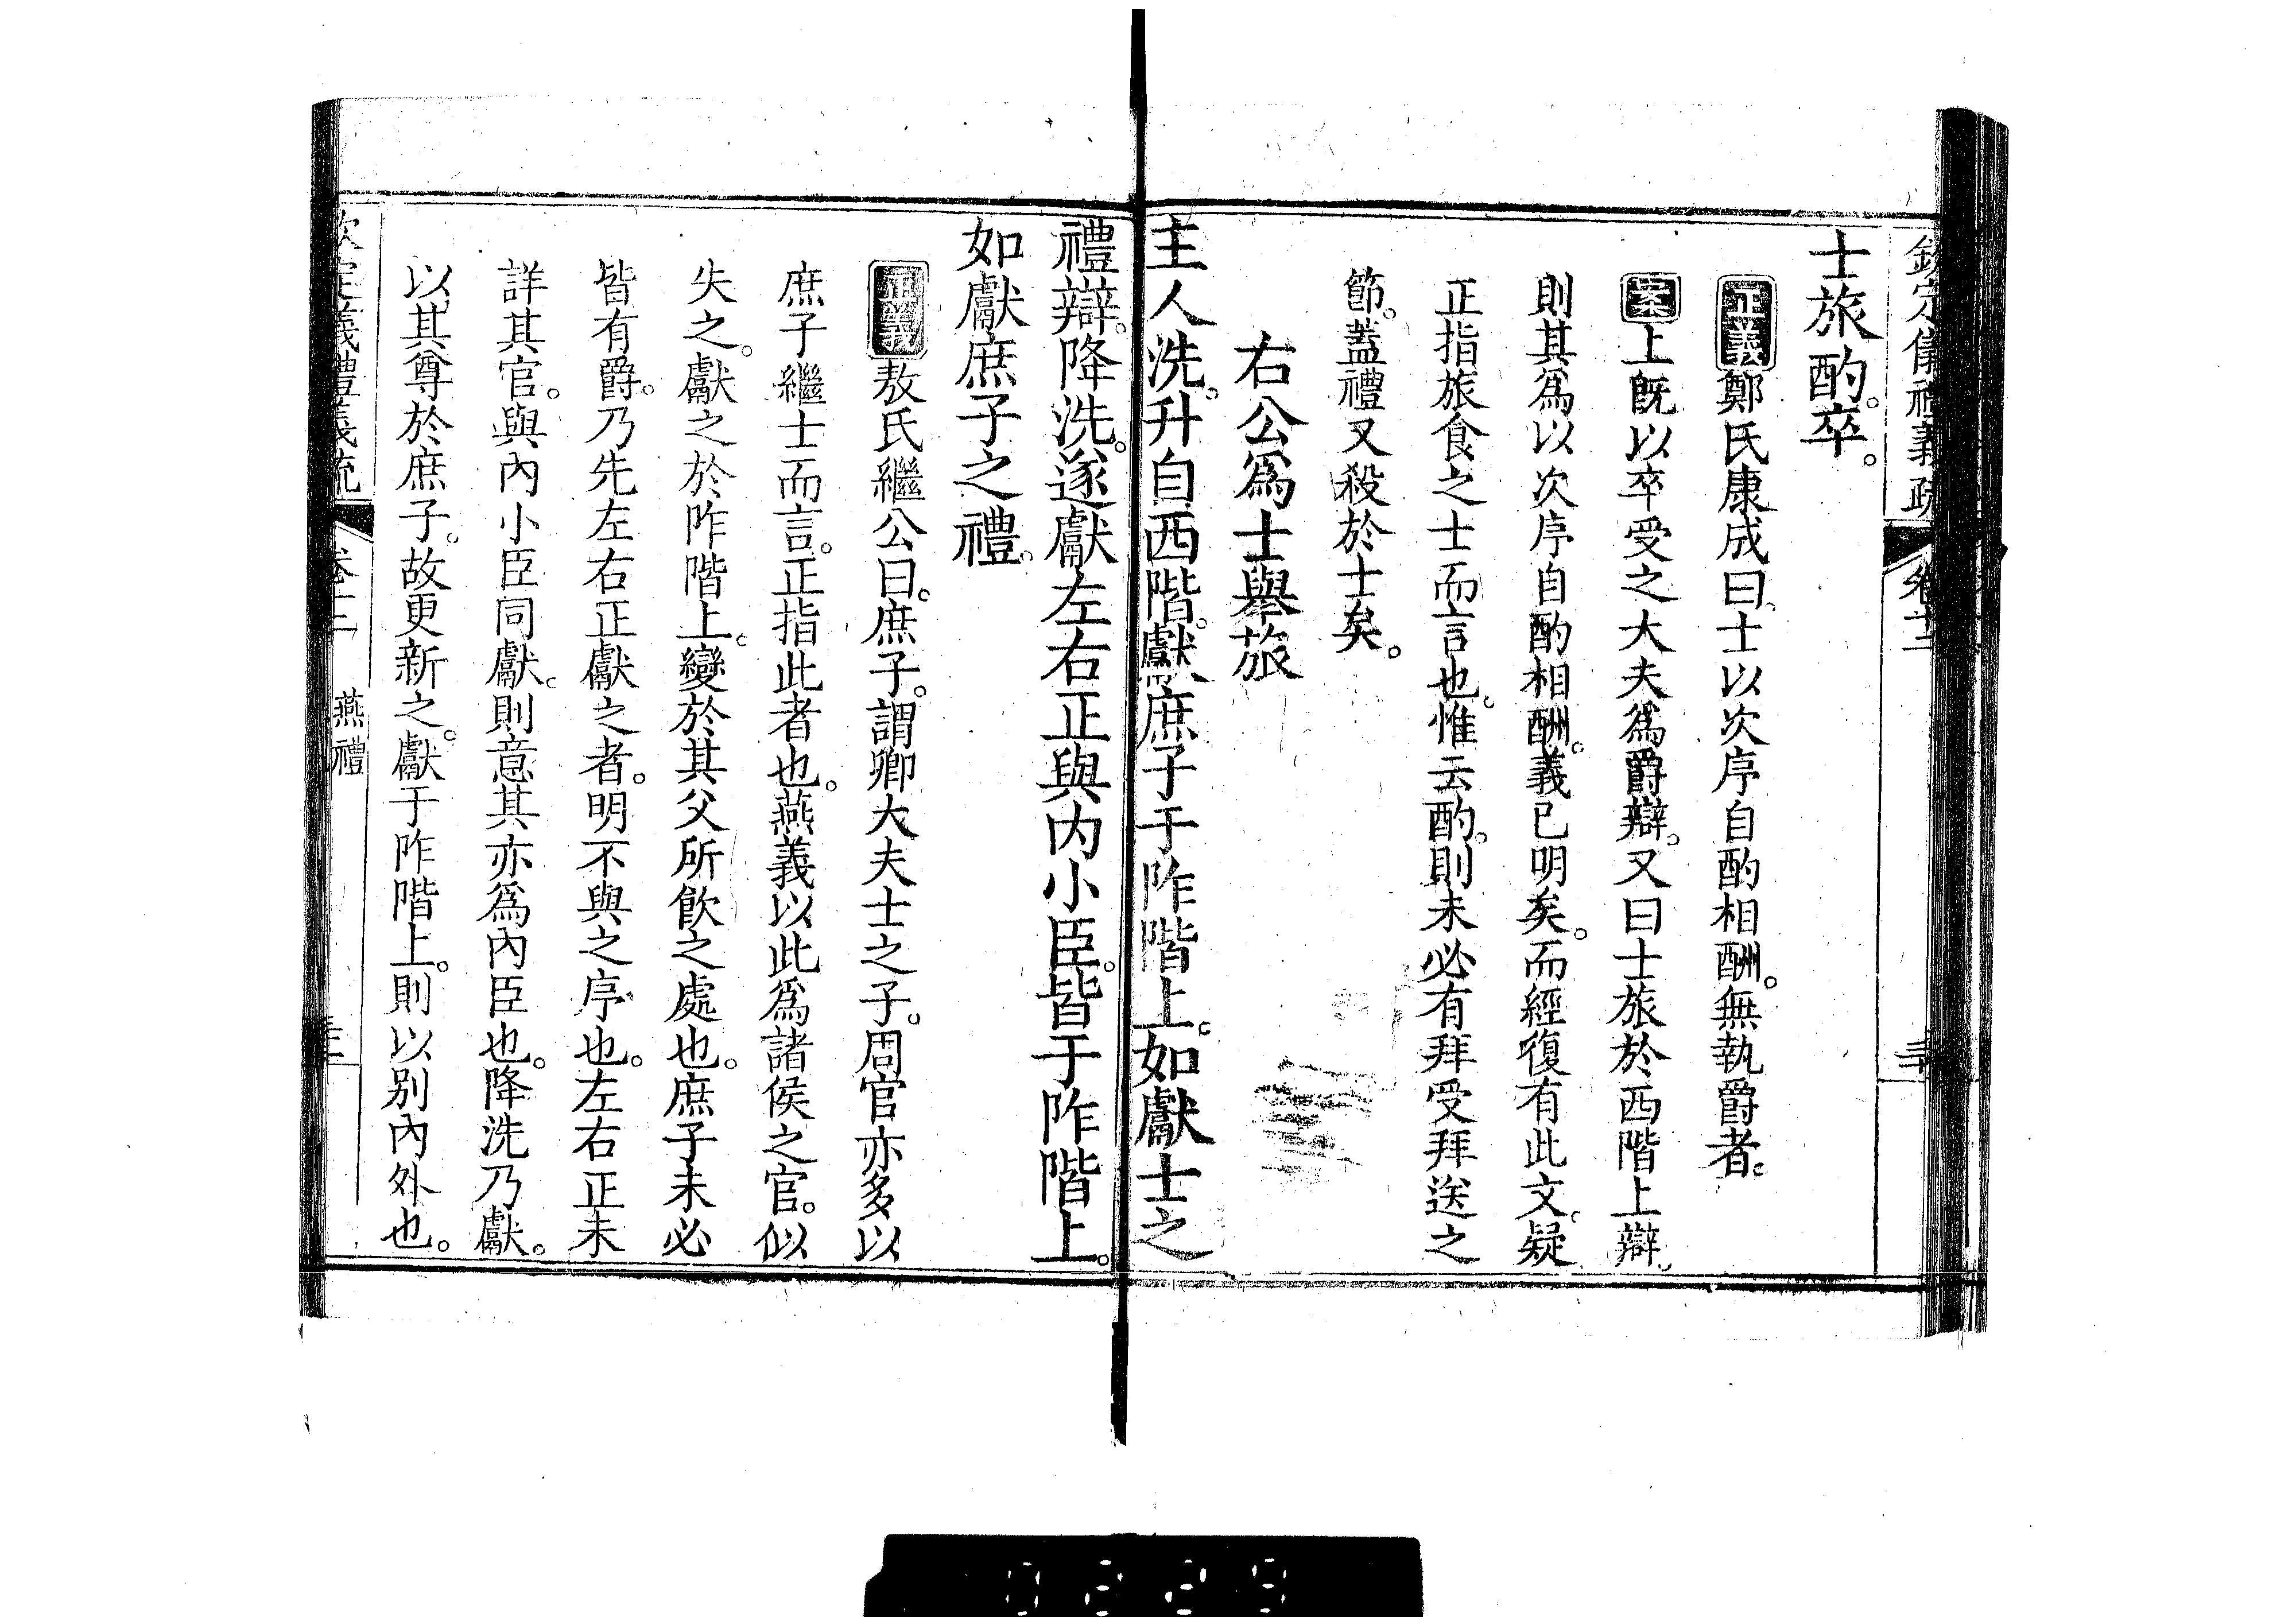 欽定儀禮義疏 卷十二
士旅酌。卒。
正義鄭氏康成曰。士以次序自酌相酬。無執爵者。
案上既以卒受之大夫爲爵辯。又曰士旅於西階上辯。
則其爲以次序自酌相酬。義已明矣。而經復有此文。疑
正指旅食之士而言也。惟云酌。則未必有拜受拜送之
節。蓋禮又殺於士矣。
右公爲士舉旅
主人洗。升自西階。獻庶子于阼階上。如獻士之
禮辯。降洗。遂獻左右正與內小臣。皆于阼階上。
如獻庶子之禮。
正義敖氏繼公曰。庶子。謂卿大夫士之子。周官亦多以
庶子繼士而言。正指此者也。燕義以此爲諸侯之官。似
失之。獻之於阼階上。變於其父所飲之處也。庶子未必
皆有爵。乃先左右正獻之者。明不與之序也。左右正未
詳其官。與內小臣同獻。則意其亦爲內臣也。降洗乃獻。
以其尊於庶子。故更新之。獻于阼階上。則以別內外也。
燕禮